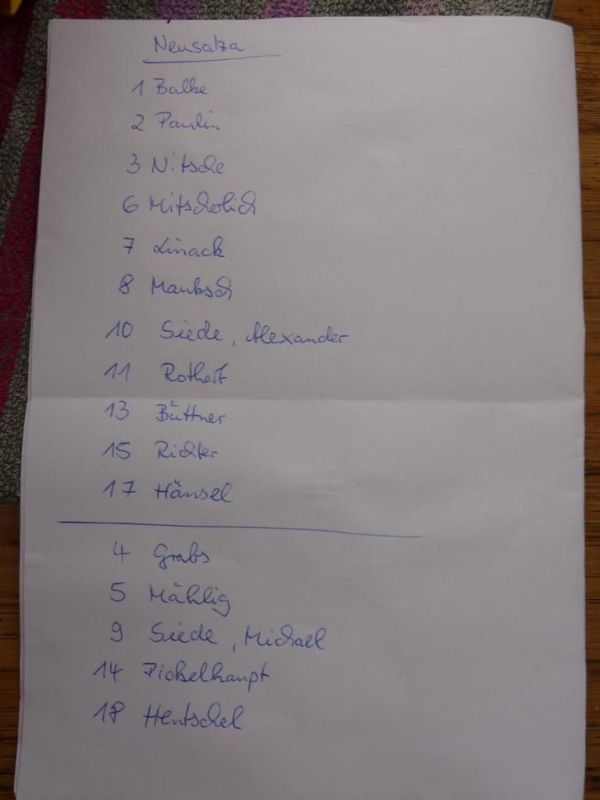 Neusalza
1 Balke
2 Paulin
3 Nitsche
6 Mitscherlich
7 Linack
8 Mauksch
10 Siede, Alexander
11 Rothert
13 Büttner
15 Richter
17 Hänsel
4 Grabs
5 Mählig
9 Siede, Michael
14 Pickelhaupt
18 Hentschel